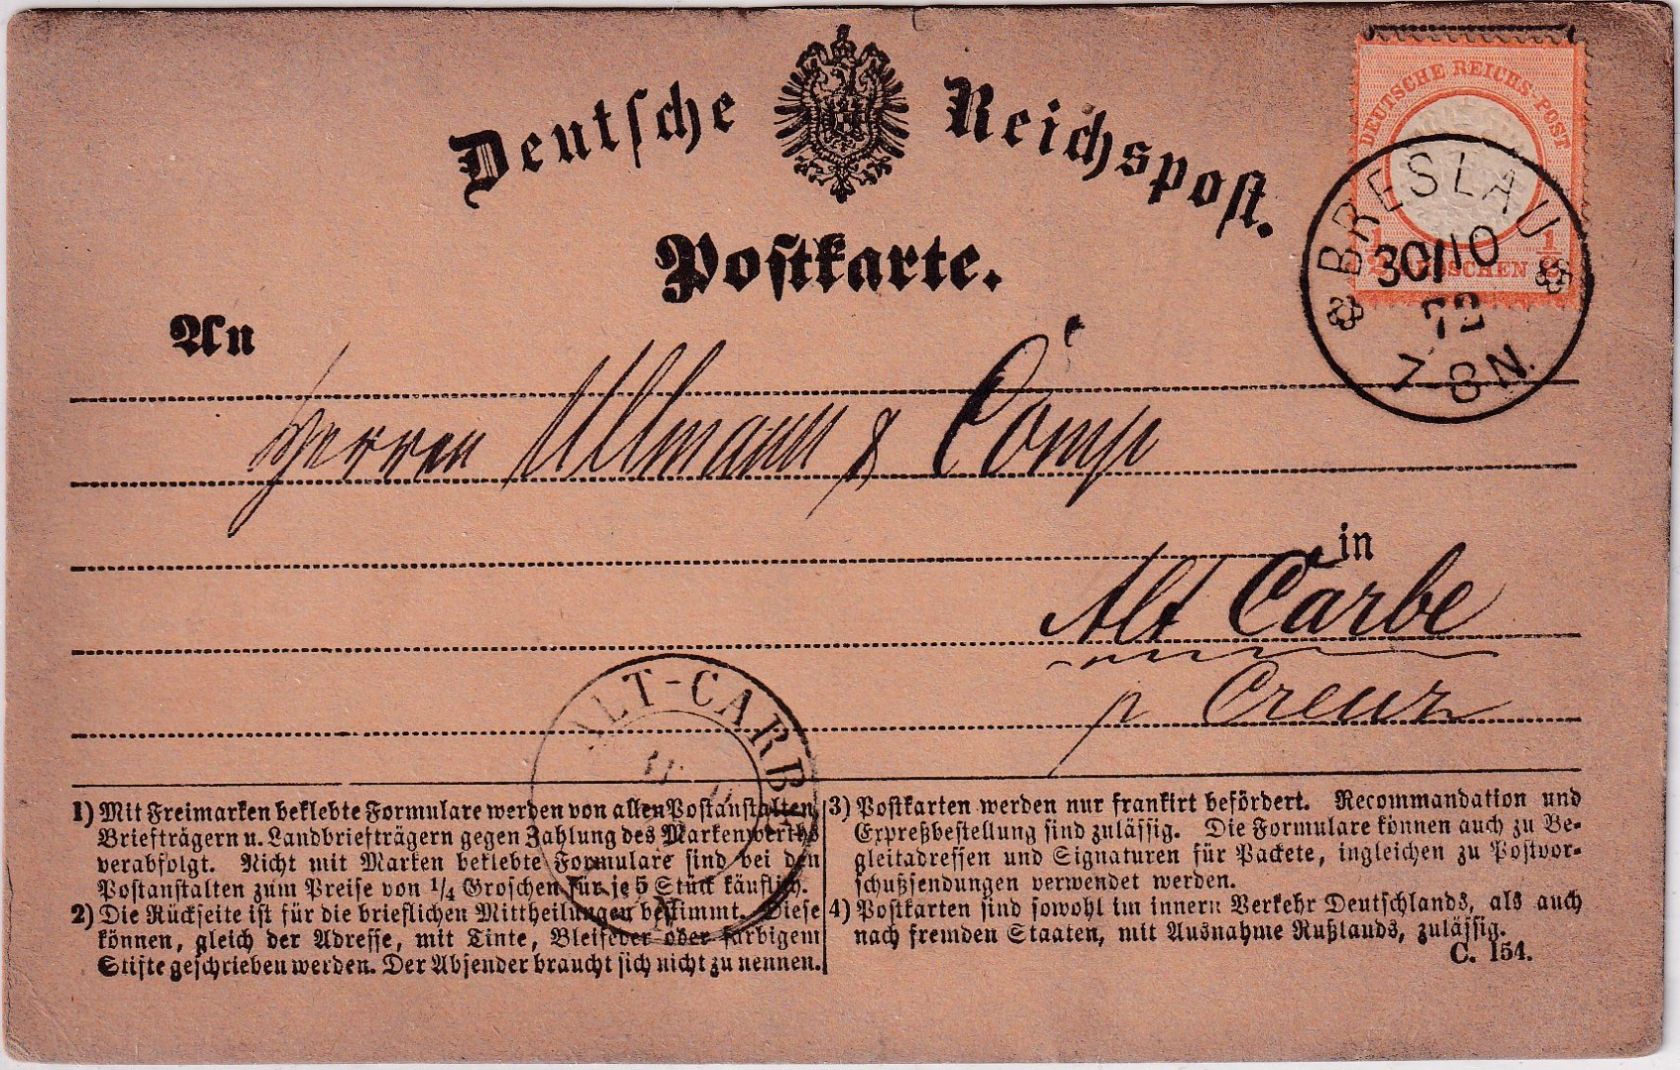 Deutsche Reichspost.
Postkarte.
DEUTSCHE REICHS-POST
1/2 GROSCHEN 1/2
BRESLAU
30/10
72
7-8N.
An
Herren Ullmann & Comp
in
Alt Carbe
p Creuz
ALT-CARB
1) Mit Freimarken beklebte Formulare werden von allen Postanstalten,
Briefträgern u. Landbriefträgern gegen Zahlung des Markenwerths
verabfolgt. Nicht mit Marken beklebte Formulare sind bei den
Postanstalten zum Preise von 1/4 Groschen für je 5 Stück käuflich.
2) Die Rückseite ist für die brieflichen Mittheilungen bestimmt. Diese
können, gleich der Adresse, mit Tinte, Bleifeder oder farbigem
Stifte geschrieben werden. Der Absender braucht sich nicht zu nennen.
3) Postkarten werden nur frankirt befördert. Recommandation und
Expreßbestellung sind zulässig. Die Formulare können auch zu Be-
gleitadressen und Signaturen für Packete, ingleichen zu Postvor-
schußsendungen verwendet werden.
4) Postkarten sind sowohl im innern Verkehr Deutschlands, als auch
nach fremden Staaten, mit Ausnahme Rußlands, zulässig.
C. 154.